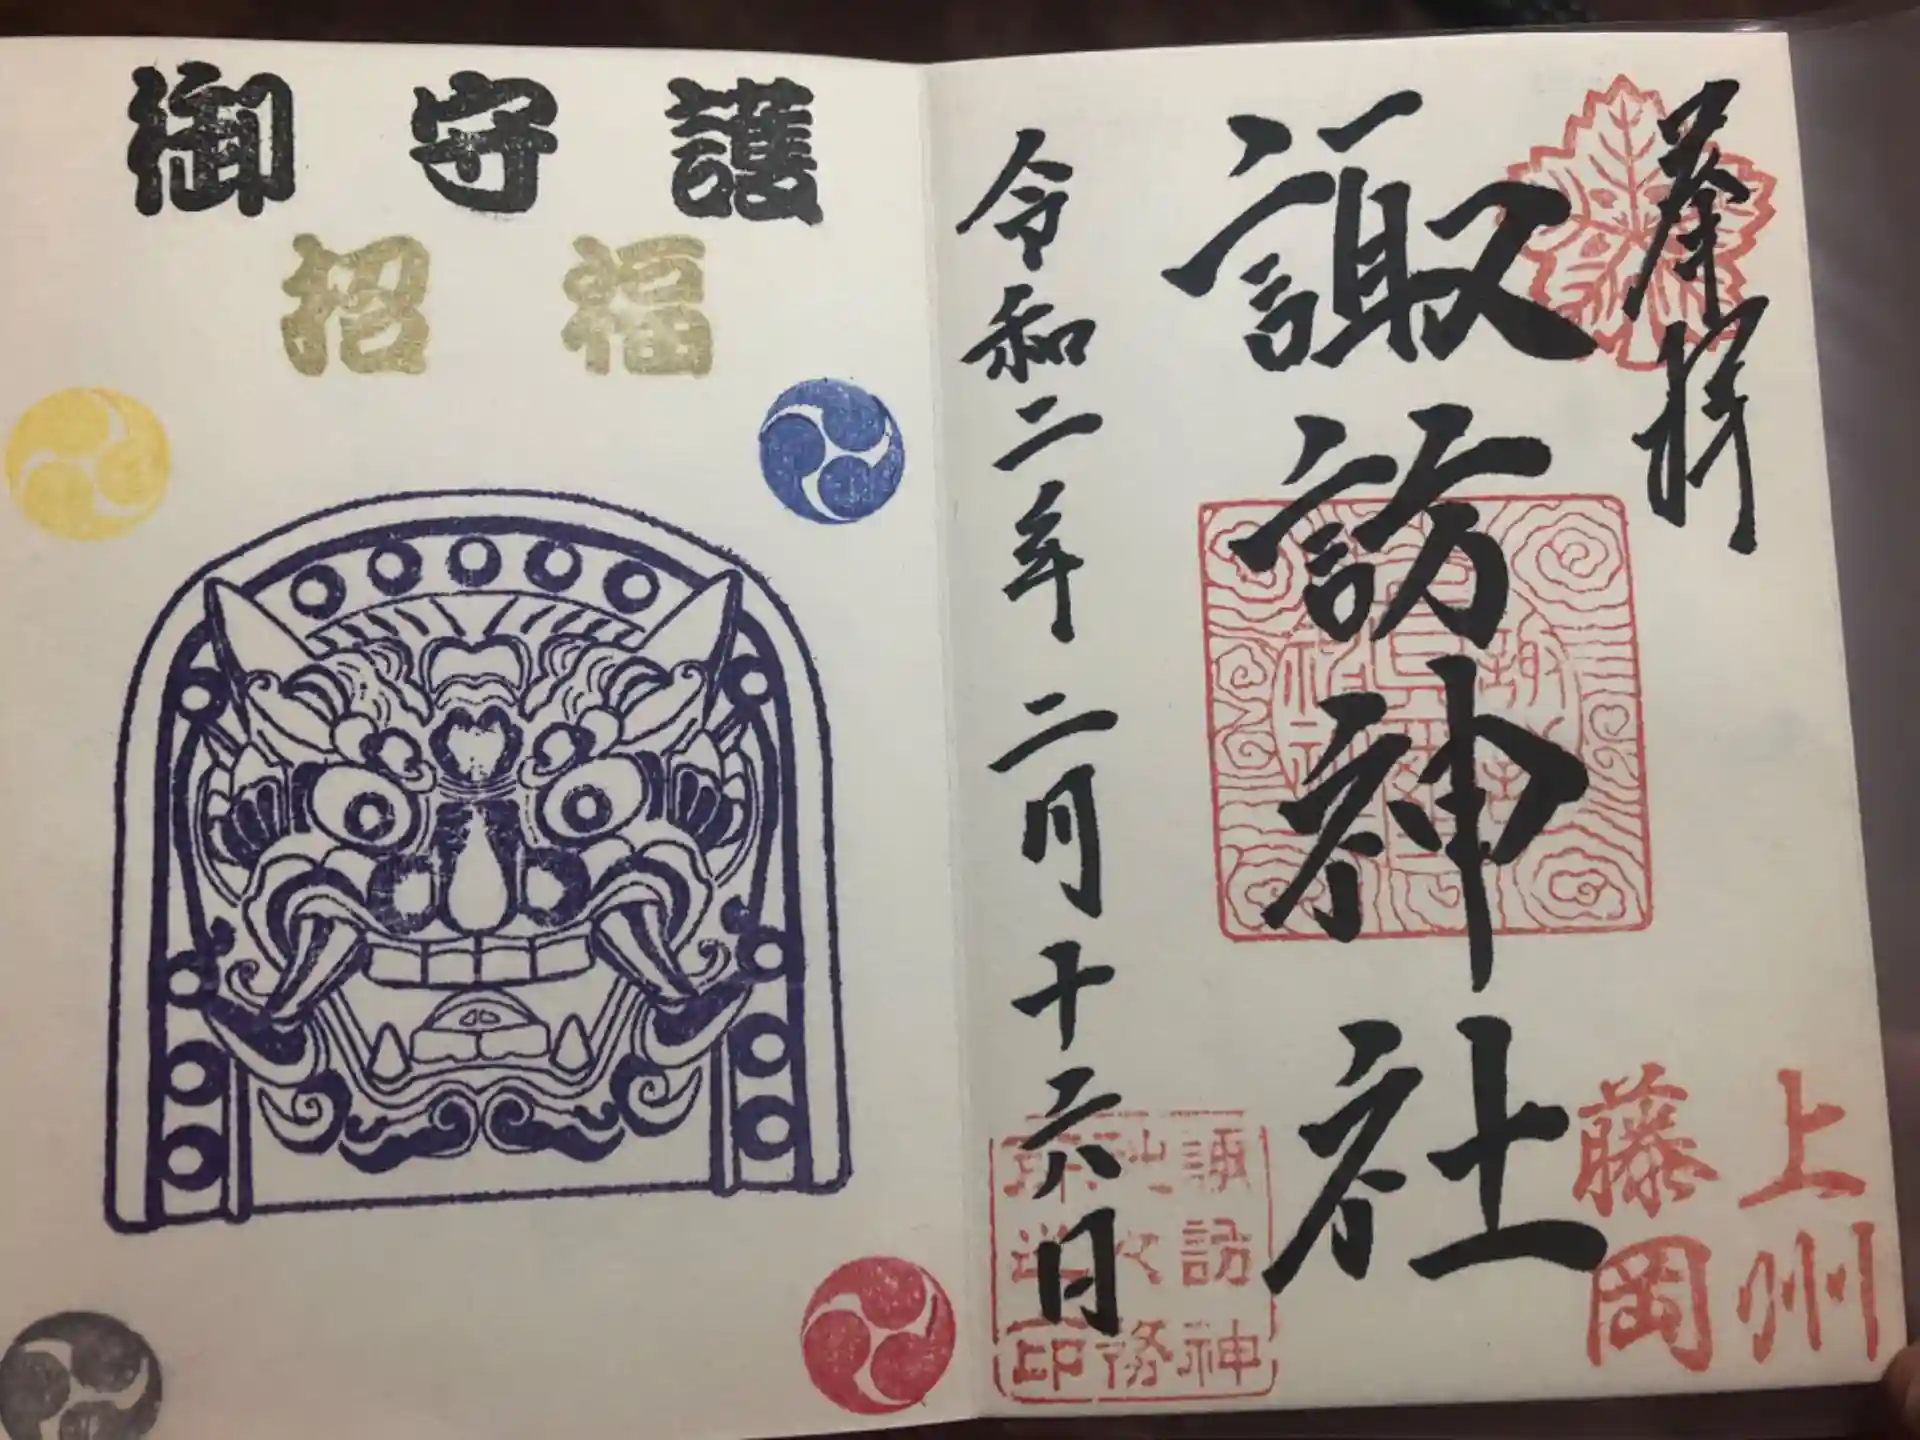 奉拝
諏訪神社
令和二年二月十六日
上州
藤岡
諏訪神
印
御守護
招福